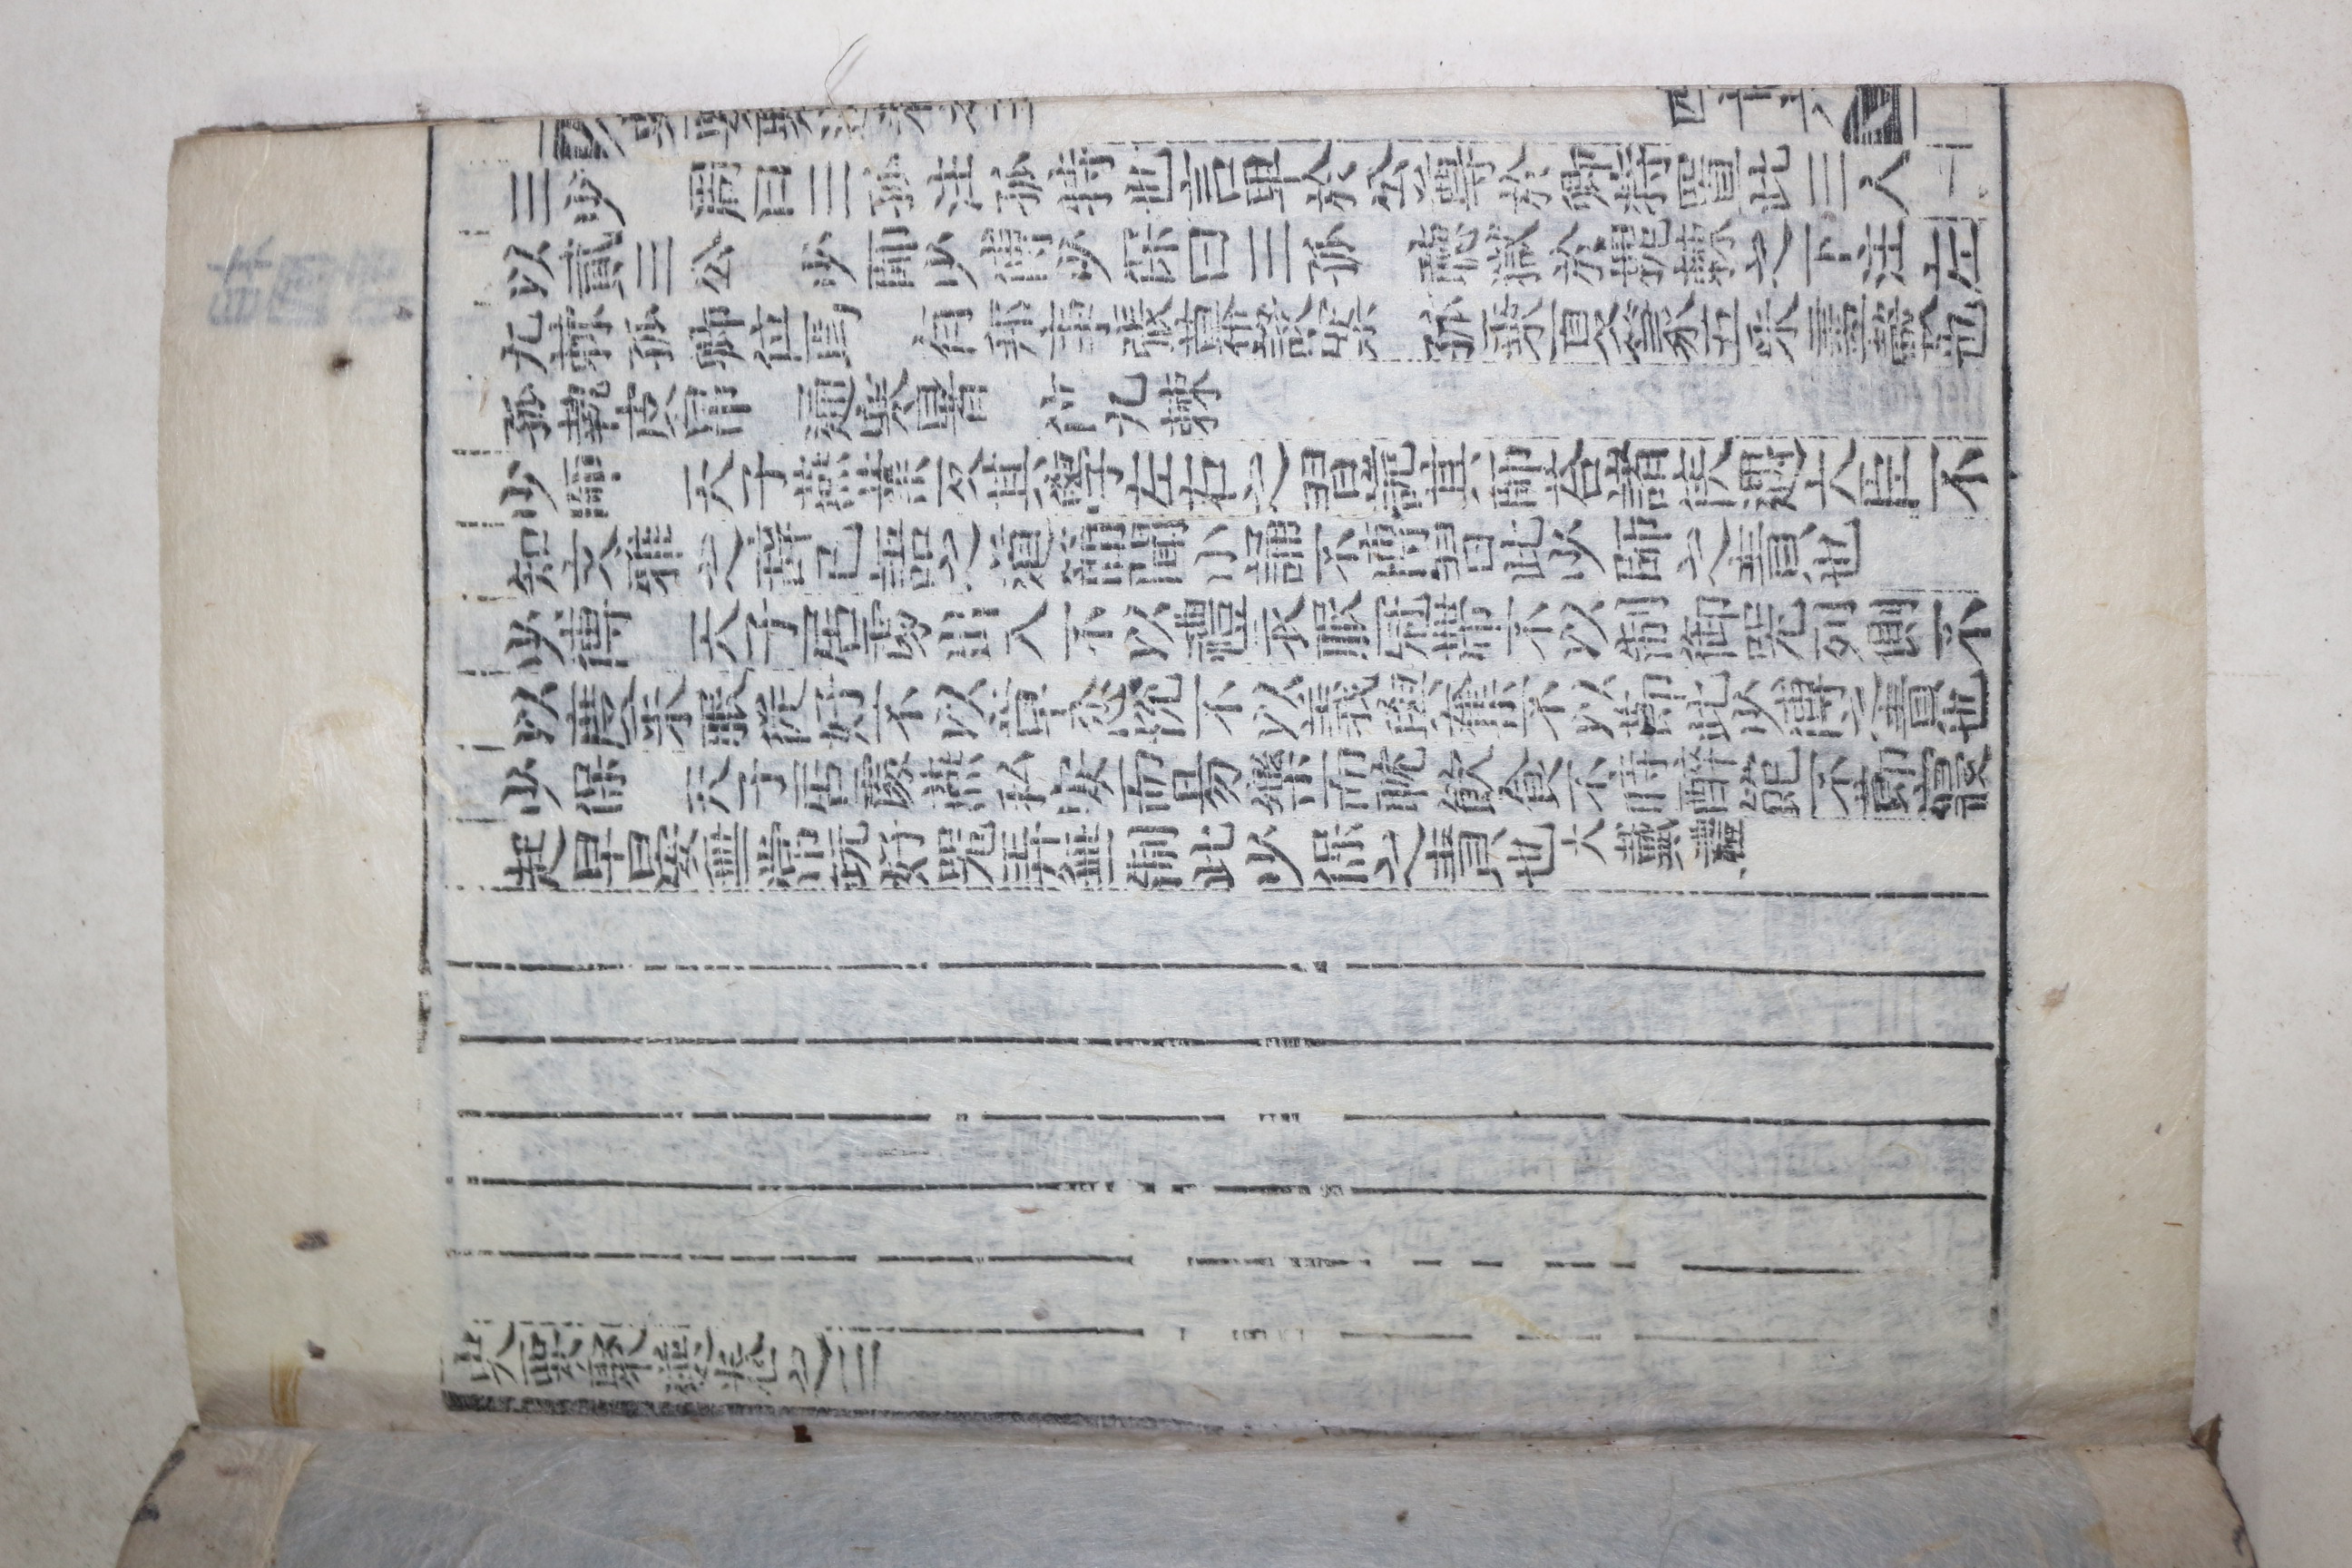 三少　周曰三孤注孤特也言卑於公尊於卿特置此三人
以貳三公　少師少傅少保曰三孤　聽獄於槐棘之下注左
九棘孤卿位焉　有邦事張幕設案　孤乘夏篆五采畫轂也
孤執皮帛　逼寒暑　位九棘
少師　天子燕業反其學左右之習詭其師荅諸侯遇大臣不
知文雅之辭已語之道簡聞小誦不博習此少師之責也
少傅　天子居處出入不以禮衣服冠帶不以制御器列側不
以度采服從好不以章忿悅不以義與奪不以節此少傅之責也
少保　天子居處燕私安而易樂而耽飲食不時醉飽不節寢
起早晏無常玩好器弄無制此少保之責也大戴禮
四十六